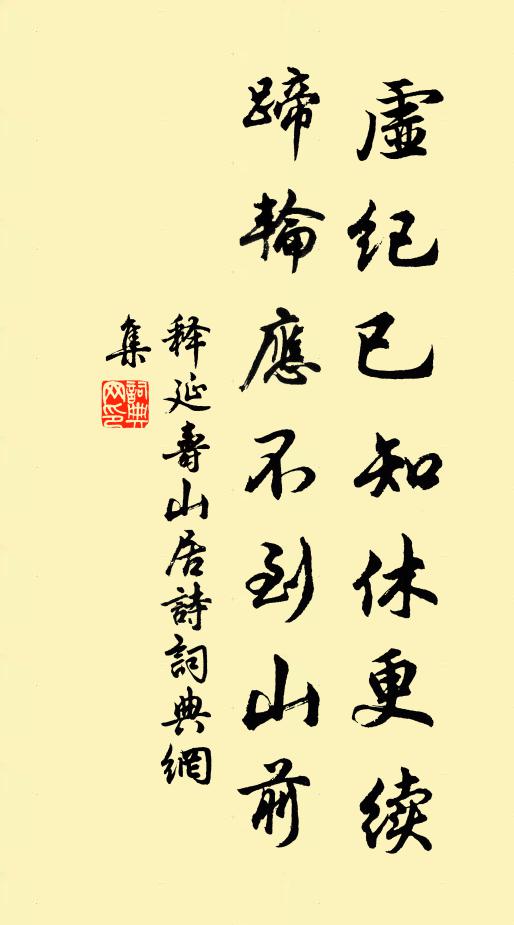 虛紀已知休更續
蹄輪應不到山前
释延壽山居詩詞典網
集
詞典
网印